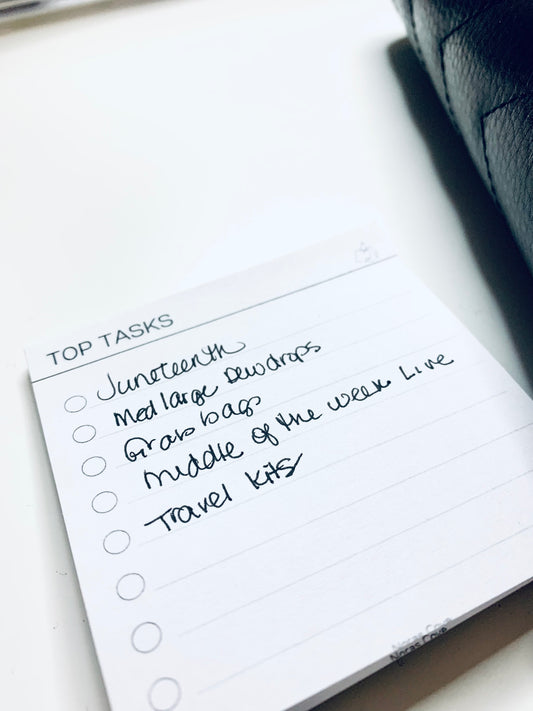 TOP TASKS
Juneteenth
Med large Dewdrops
Grab bags
Middle of the week Live
Travel kits